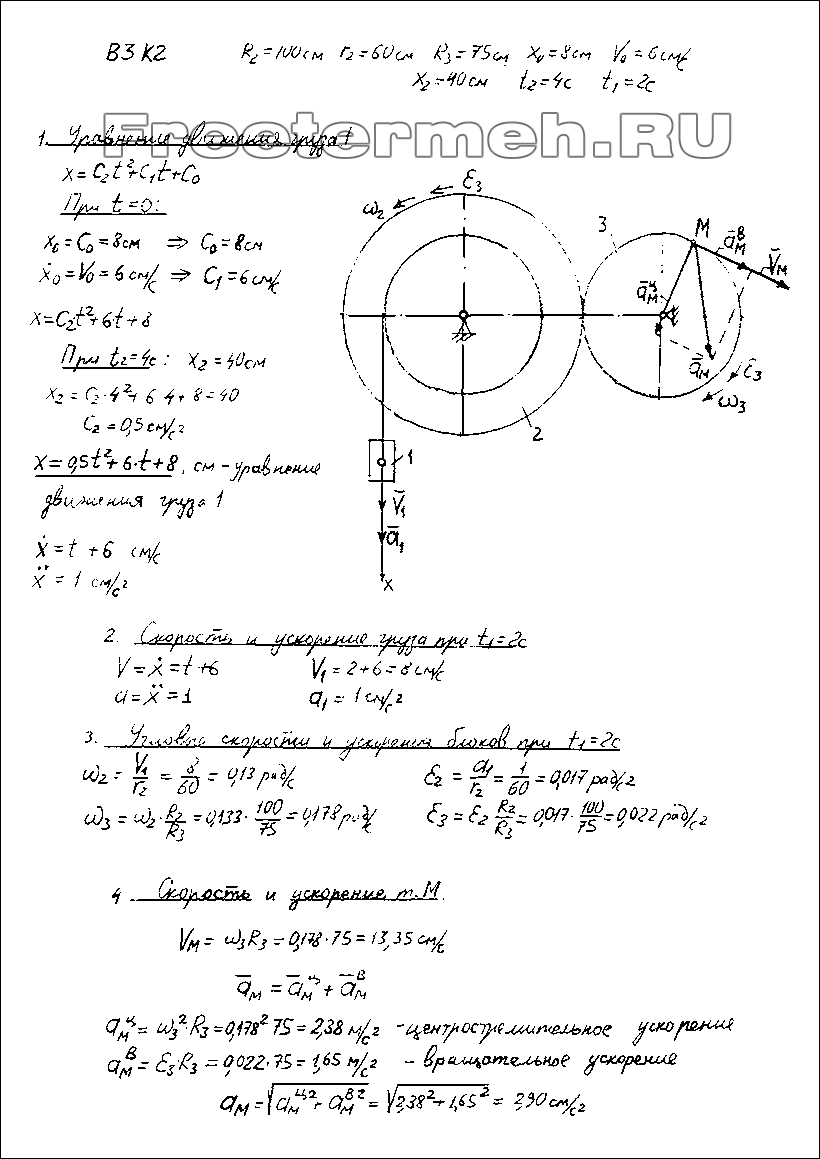 В3 К2 R₂=100см r₂=60см R₃=75см x₀=8см V₀=6см/с
x₂=40см t₂=4с t₁=2с
Freetermeh.RU
1. Уравнение движения груза 1
x=C₂t²+C₁t+C₀
При t=0:
x₀=C₀=8см ⇒ C₀=8см
ẋ₀=V₀=6см/с ⇒ C₁=6см/с
x=C₂t²+6t+8
При t₂=4с: x₂=40см
x₂=C₂·4²+6·4+8=40
C₂=0,5см/с²
x=0,5t²+6·t+8, см - уравнение
движения груза 1
ẋ=t+6 см/с
ẍ=1 см/с²
ω₂
Ɛ₃
3
M
a̅ᴍᴮ
V̅ᴍ
a̅ᴍᶣ
a̅ᴍ
Ɛ₃
ω₃
2
1
V̅₁
a̅₁
x
2. Скорость и ускорение груза при t₁=2с
V=ẋ=t+6 V₁=2+6=8см/с
a=ẍ=1 a₁=1см/с²
3. Угловые скорости и ускорения блоков при t₁=2с
ω₂=V₁/r₂=8/60=0,13рад/с Ɛ₂=a₁/r₂=1/60=0,017рад/с²
ω₃=ω₂·R₂/R₃=0,133·100/75=0,178рад/с Ɛ₃=Ɛ₂R₂/R₃=0,017·100/75=0,022рад/с²
4. Скорость и ускорение т.М
Vᴍ=ω₃R₃=0,178·75=13,35см/с
a̅ᴍ=a̅ᴍц+a̅ᴍв
aᴍц=ω₃²·R₃=0,178²75=2,38м/с² - центростремительное ускорение
aᴍв=Ɛ₃·R₃=0,022·75=1,65м/с² - вращательное ускорение
aᴍ=√(aᴍц²+aᴍв²)=√(2,38²+1,65²)=2,90см/с²